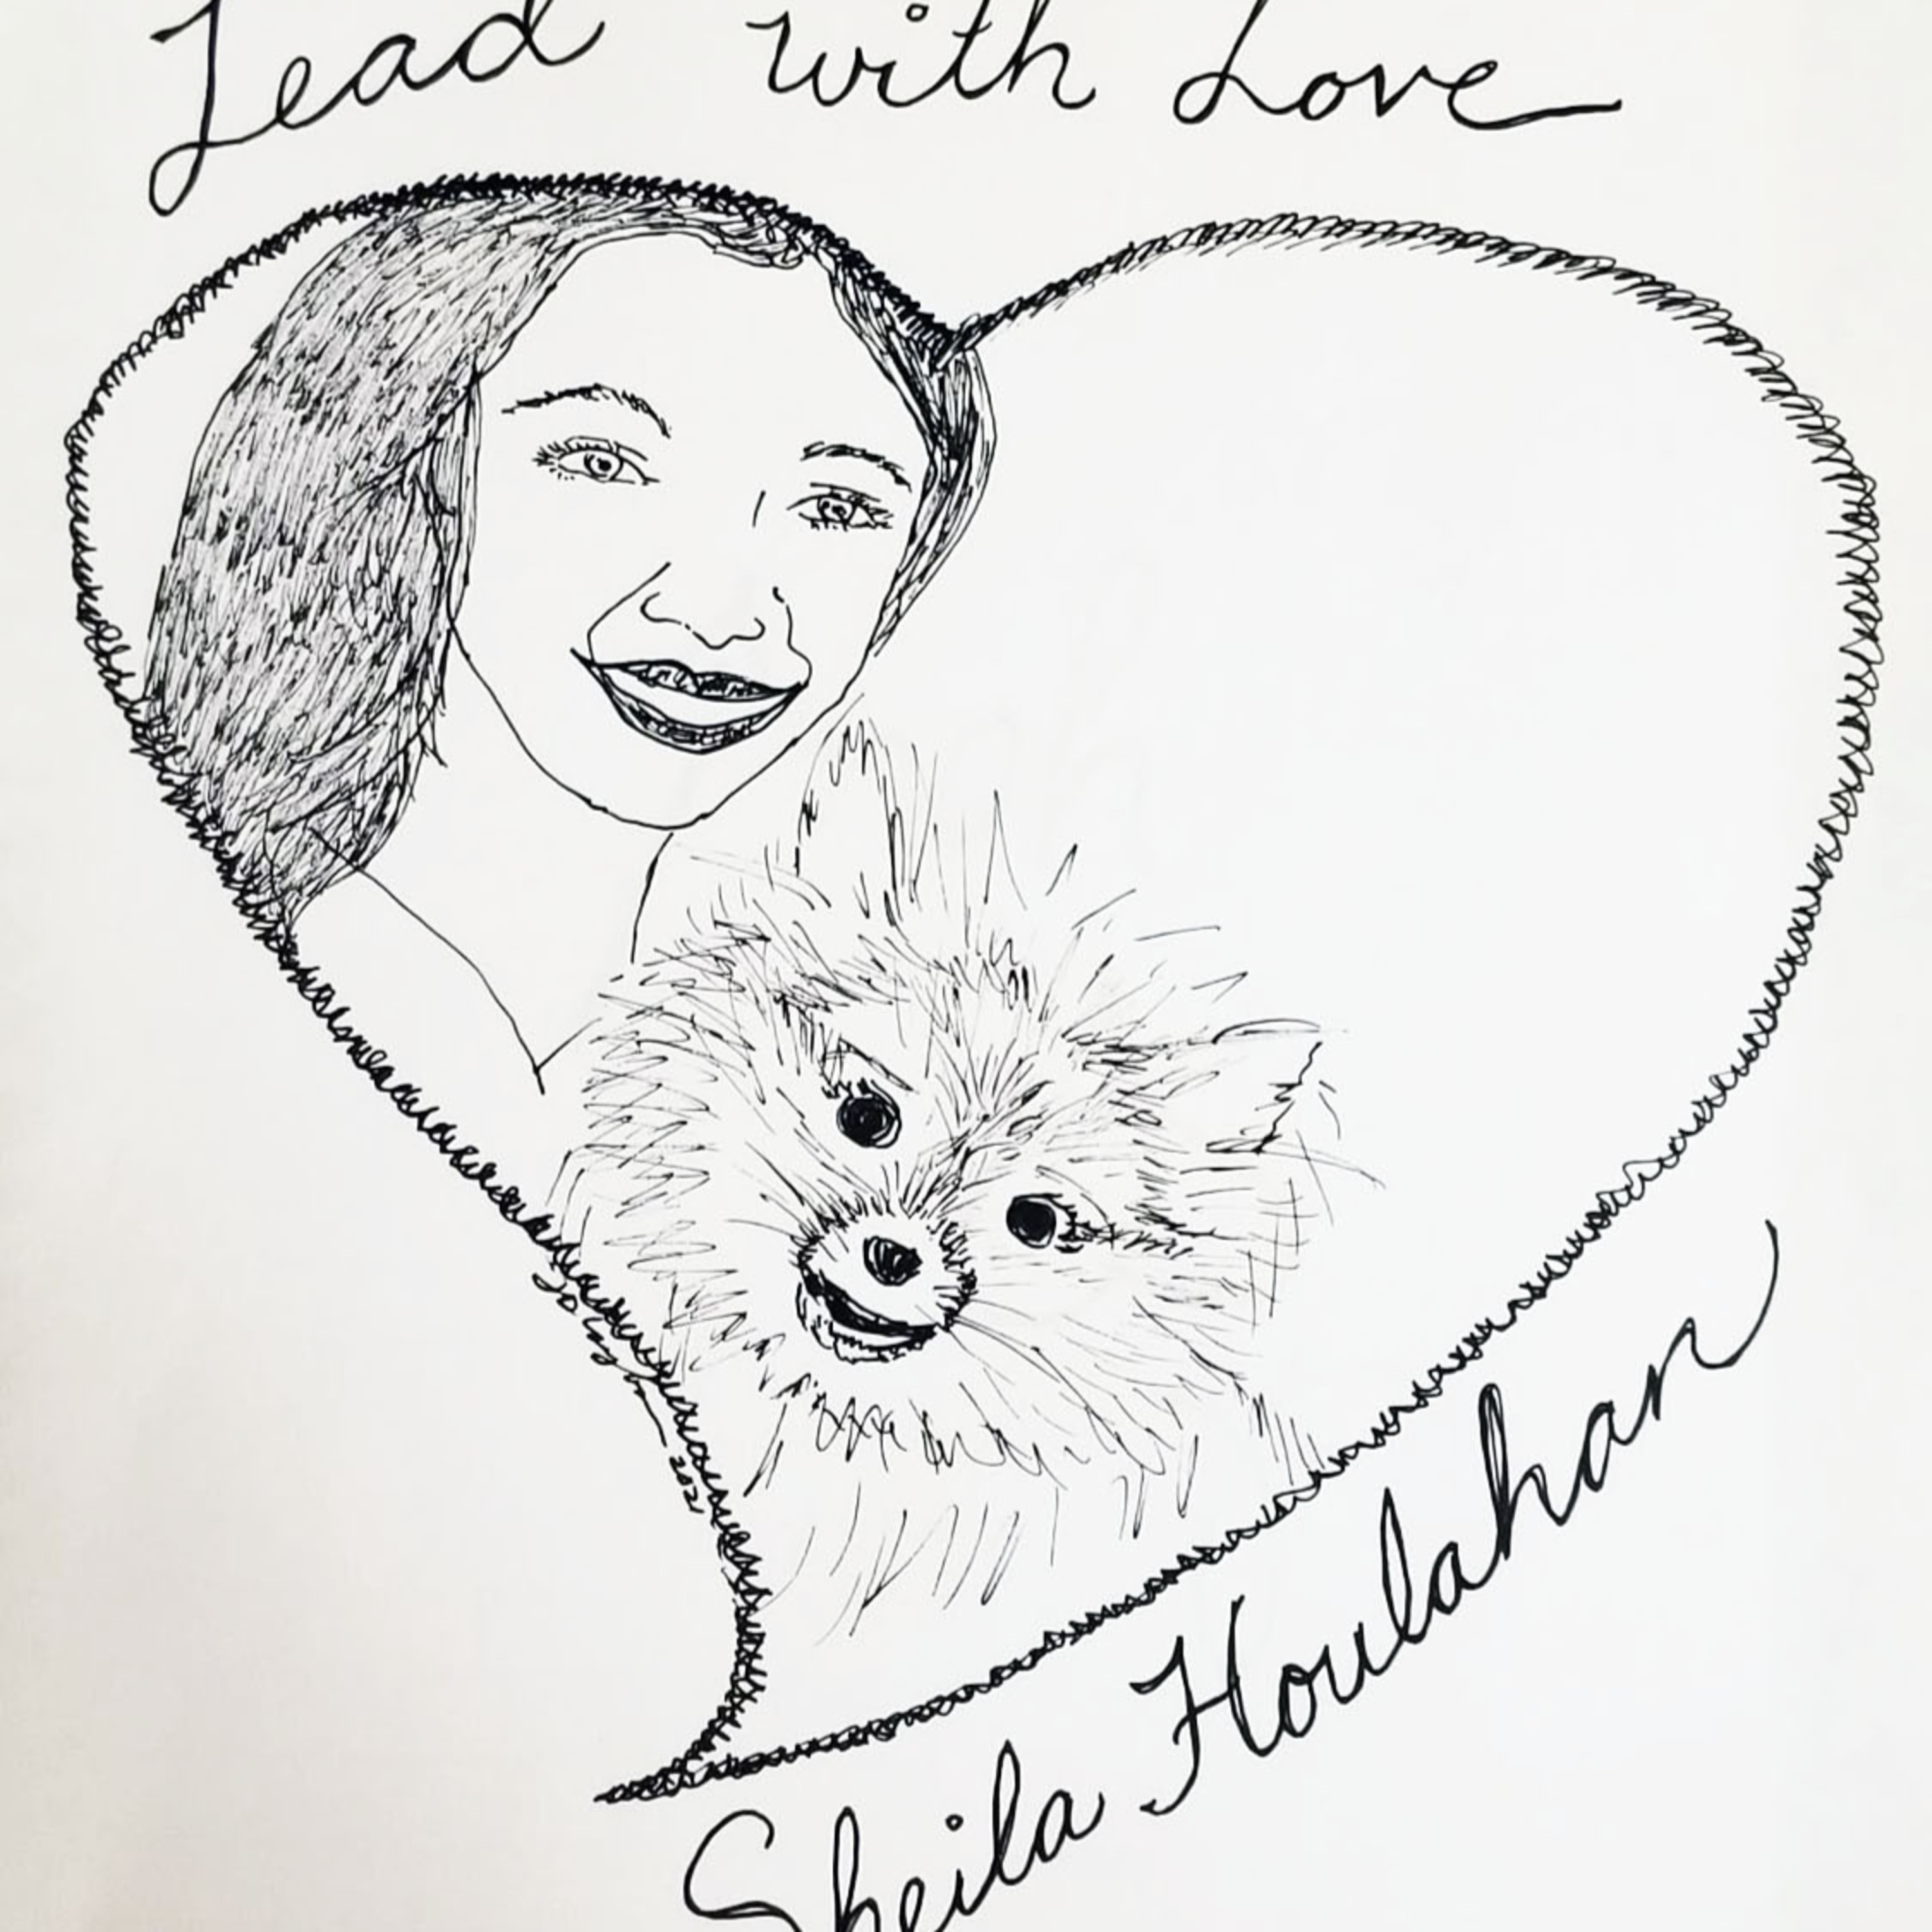 Lead with Love
2021
Sheila Houlahan